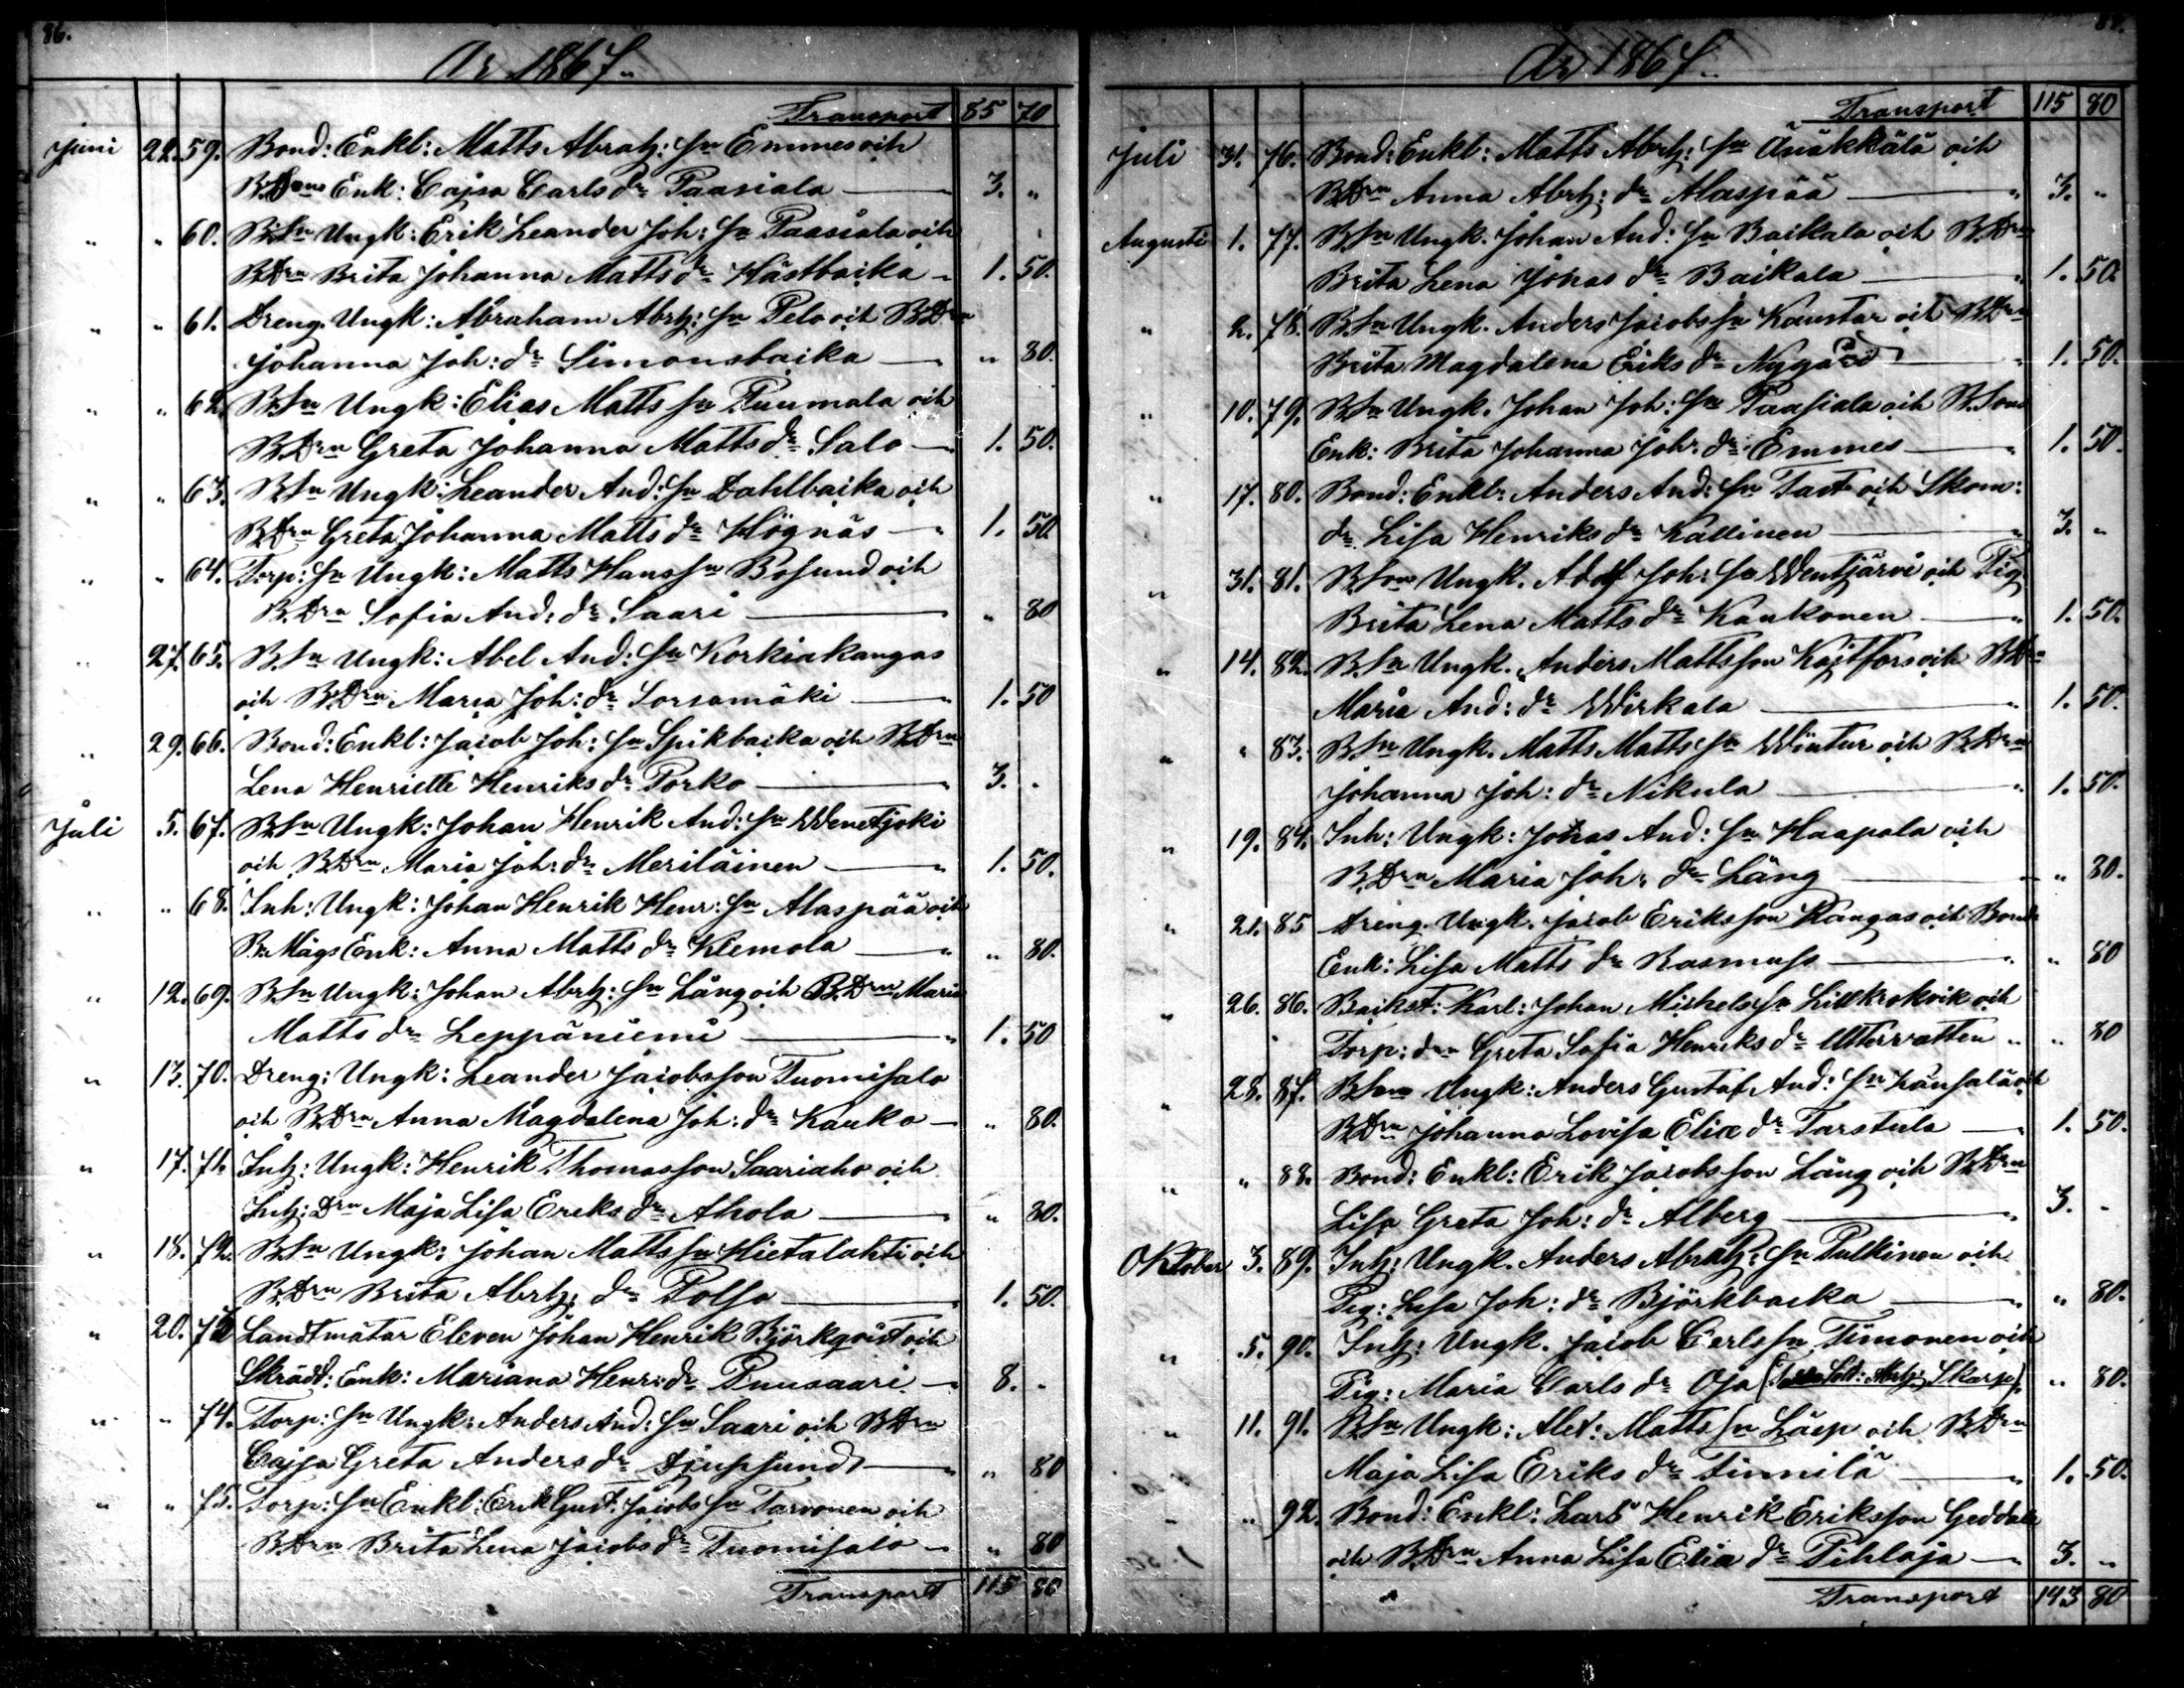 86.
År 1867.
Transport 85 70
Juni 22. 59. Bond: Enkl: Matts Abrah: Sn Emmes och
B.Sons Enk: Cajsa Carls dr Paasiala — 3. "
" " 60. B.Sn Ungk: Erik Leander Joh: Sn Paasiala och
B.Drn Brita Johanna Matts dr Hästbacka — 1. 50.
" " 61. Dreng. Ungk: Abraham Abrh: Sn Pelo och B.Drn
Johanna Joh: dr Simonsbacka — " 80.
" " 62. B.Sn Ungk: Elias Matts Sn Puumala och
B.Drn Greta Johanna Matts dr Salo — 1. 50.
" " 63. B.Sn Ungk: Leander And: Sn Dahlbacka och
B.Drn Greta Johanna Matts dr Högnäs — 1. 50.
" " 64. Torp: Sn Ungk: Matts Hans Sn Bosund och
B.Drn Sofia And: dr Saari — " 80
" 27. 65. B.Sn Ungk: Abel And: Sn Korkiakangas
och B.Drn Maria Joh: dr Sorsamäki — 1. 50
" 29. 66. Bond: Enkl: Jacob Joh: Sn Spikbacka och B.Drn
Lena Henriette Henriks dr Porko — 3. "
Juli 5. 67. B.Sn Ungk: Johan Henrik And: Sn Wenetjoki
och B.Drn Maria Joh: dr Meriläinen — 1. 50.
" " 68. Inh: Ungk: Johan Henrik Henr: Sn Alaspää och
B.Mågs Enk: Anna Matts dr Klemola — " 80.
" 12. 69. B.Sn Ungk: Johan Abrh: Sn Lång och B.Drn Maria
Matts dr Leppäniemi — 1. 50
" 13. 70. Dreng: Ungk: Leander Jacobsson Tuomisalo
och B.Drn Anna Magdalena Joh: dr Kauko — " 80.
" 17. 71. Inh: Ungk: Henrik Thomasson Saariaho och
Inh: Drn Maja Lisa Eriks dr Ahola — " 80.
" 18. 72. B.Sn Ungk: Johan Matts Sn Hietalahti och
B.Drn Brita Abrh: dr Polso — 1. 50.
" 20. 73 Landtmätar Eleven Johan Henrik Björkqvist och
Skrädd: Enk: Mariana Henr: dr Puusaari — 8. "
" " 74. Torp: Sn Ungk: Anders And: Sn Saari och B.Drn
Cajsa Greta Anders dr Djupsund — " 80
" " 75. Torp: Sn Enkl: Erik Gust. Jacobs Sn Tarvonen och
B.Drn Brita Lena Jacobs dr Tuomisalo — " 80
Transport 115 80
87.
År 1867.
Transport 115 80
Juli 31. 76. Bond: Enkl: Matts Abrh: Sn Änäkkälä och
B.Drn Anna Abrh: dr Alaspää — 3. "
Augusti 1. 77. B.Sn Ungk. Johan And: Sn Backala och B.Drn
Brita Lena Jonas dr Backala — 1. 50.
" 2. 78. B.Sn Ungk. Anders Jacobs Sn Kaustar och B.Drn
Brita Magdalena Eriks dr Nygård — 1. 50.
" 10. 79. B.Sn Ungk. Johan Joh: Sn Paasiala och B.Sons
Enk: Brita Johanna Joh: dr Emmes — 1. 50.
" 17. 80. Bond: Enkl: Anders And: Sn Tast och Skom:
dr Lisa Henriks dr Kallinen — 3. "
" 31. 81. B.Sons Ungk. Adolf Joh: Sn Wentjärvi och Pig.
Brita Lena Matts dr Kaukonen — 1. 50.
" 14. 82. B.Sn Ungk. Anders Mattsson Kajtfors och B.Drn
Maria And: dr Wirkala — 1. 50.
" " 83. B.Sn Ungk. Matts Matts Sn Wintur och B.Drn
Johanna Joh: dr Nikula — 1. 50.
" 19. 84. Inh: Ungk: Jonas And: Sn Haapala och
B.Drn Maria Joh: dr Lång — " 80.
" 21. 85 Dreng. Ungk. Jacob Eriksson Kangas och Bonde
Enk: Lisa Matts dr Rasmuss — " 80
" 26. 86. Backst: Karl: Johan Michels Sn Lillkrokvik och
Torp: drn Greta Sofia Henriks dr Uttervatten " " 80
" 28. 87. B.Sons Ungk: Anders Gustaf And: Sn Känsälä och
B.Drn Johanna Lovisa Eliæ dr Tarstula — 1. 50.
" " 88. Bond: Enkl: Erik Jacobsson Lång och B.Drn
Lisa Greta Joh: dr Alberg — 3. "
Oktober 3. 89. Inh: Ungk. Anders Abrah: Sn Pulkinen och
Pig: Lisa Joh: dr Björkbacka — " 80.
" 5. 90. Inh: Ungk. Jacob Carls Sn Timonen och
Pig: Maria Carls dr Oja Sold: Abrh: Skarp) " 80.
" 11. 91. B.Sn Ungk: Alex: Matts Sn Läsp och B.Drn
Maja Lisa Eriks dr Finnilä — 1. 50.
" " 92. Bond: Enkl: Lars Henrik Eriksson Geddala
och B.Drn Anna Lisa Eliæ dr Pihlaja — 3. "
Transport 143 80